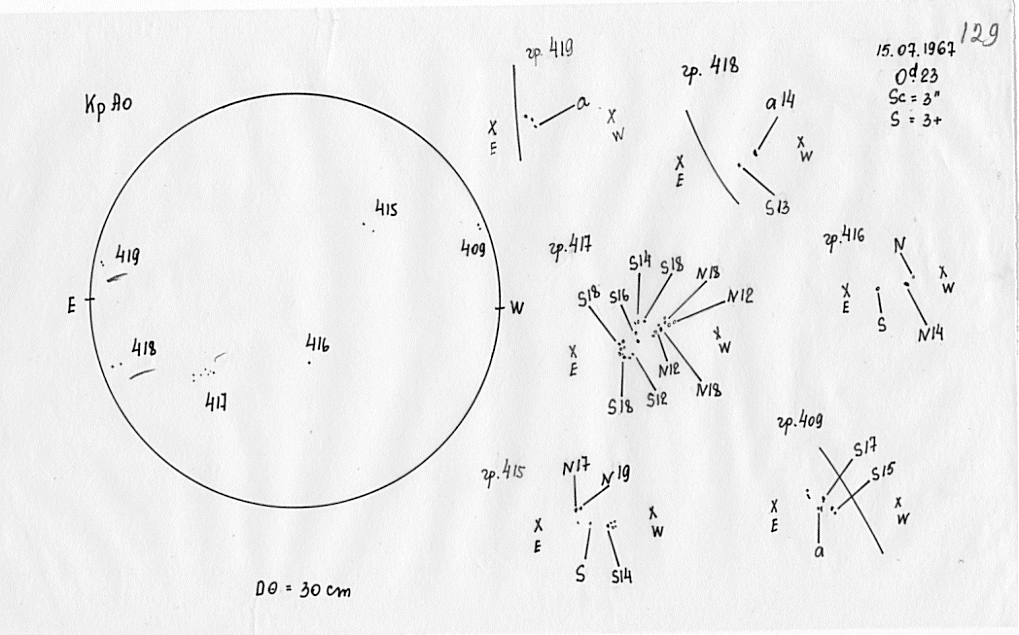 129
15.07.1967
Od.23
Sc = 3"
S = 3+
Кр АО
415
409
419
E
W
418
416
417
DΘ = 30 cm
гр. 419
a
X
E
X
W
гр. 418
a 14
X
E
X
W
S13
гр.417
S14
S18
N18
S18
S16
N12
X
E
X
W
N12
S18
S12
N18
гр.416
N
X
E
X
W
S
N14
гр.415
N17
N19
X
E
X
W
S
S14
гр.409
S17
S15
X
E
X
W
a